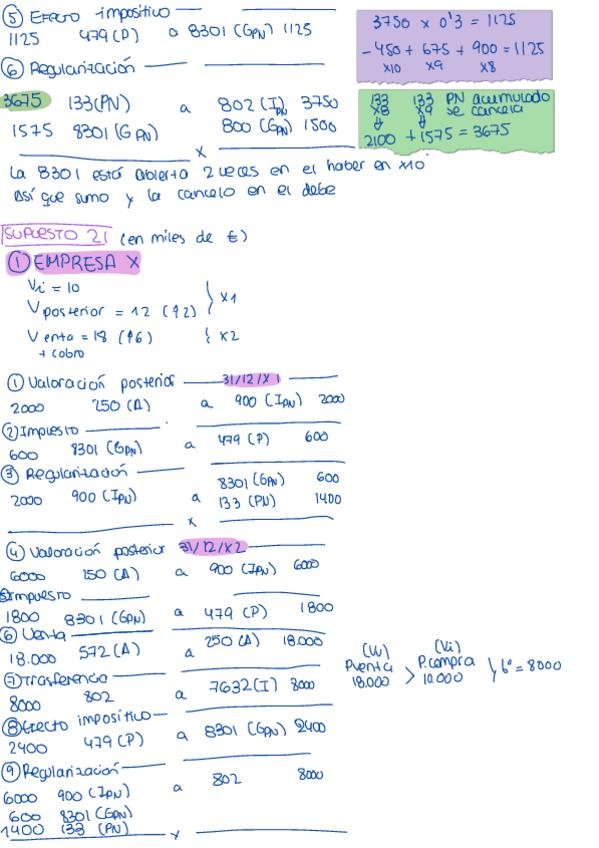 ⑤ Efecto impositivo
1125 479(P) a 8301 (GPN) 1125
3750 x 0'3 = 1125
-450 + 675 + 900 = 1125
x10 x9 x8
⑥ Regularización
3675 133(PN) a 802 (IPN) 3750
1575 8301 (GPN) 800 (GPN) 1500
x
133 133 PN acumulado
x8 x9 se cancela
2100 + 1575 = 3675
La 8301 está abierta 2 veces en el haber en x10
así que sumo y la cancelo en el debe
SUPUESTO 21 (en miles de €)
① EMPRESA X
Vi = 10
Vposterior = 12 (↑2) } x1
Venta = 18 (↑6) { x2
+ cobro
① Valoración posterior 31/12/X1
2000 250 (A) a 900 (IPN) 2000
② Impuesto
600 8301 (GPN) a 479 (P) 600
③ Regularización
8301 (GPN) 600
2000 900 (IPN) a 133 (PN) 1400
x
④ Valoración posterior 31/12/X2
6000 250 (A) a 900 (IPN) 6000
⑤ Impuesto
1800 8301 (GPN) a 479 (P) 1800
⑥ Venta
18.000 572 (A) a 250 (A) 18.000
(Vv) (Vi)
P.venta > P.compra } bº = 8000
18.000 10.000
⑦ Trasferencia
8000 802 a 7632 (I) 8000
⑧ Efecto impositivo
2400 479 (P) a 8301 (GPN) 2400
⑨ Regularización
6000 900 (IPN) a 802 8000
600 8301 (GPN)
1400 133 (PN)
x